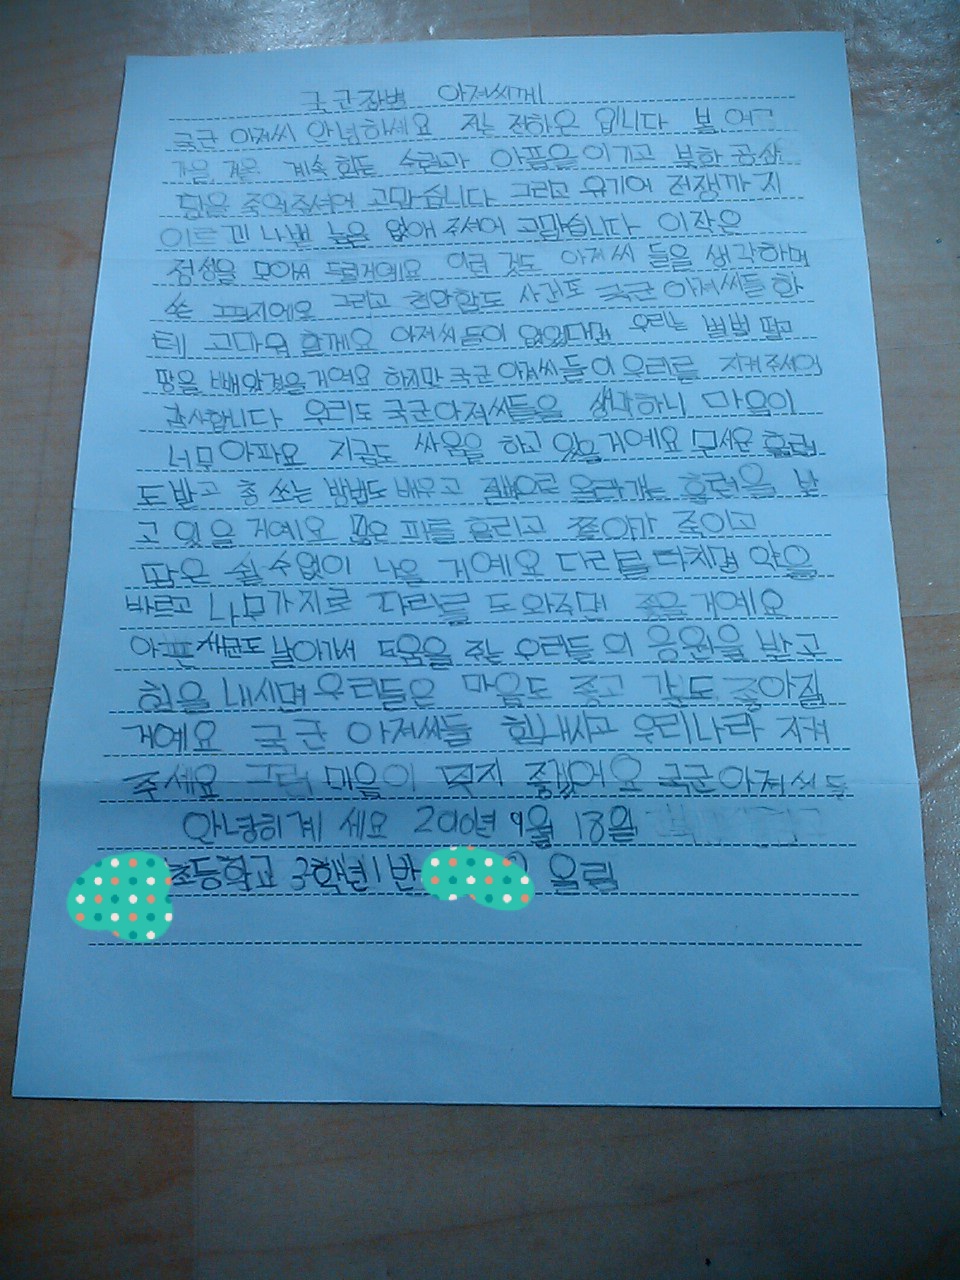 국군장병 아저씨께
국군 아저씨 안녕하세요 저는 전하은 입니다 봄 여름
가을 겨울 계속 힘든 수련과 아픔을 이기고 북한 공산
당을 죽여주셔서 고맙습니다 그리고 유기어 전쟁까지
이르 나낸 놈을 없애 주셔서 고맙습니다 이작은
정성을 모아서 드릴게에요 이런 것도 아저씨 들을 생각하며
쓴 편지에요 그리고 천안함도 사건도 국군 아저씨들 한
테 고마워 할게요 아저씨들이 없었다면 우리는 벌벌 떨고
땅을 빼앗겼을거여요 하지만 국군 아저씨들이 우리를 지켜주셔서
감사합니다 우리도 국군아저씨들을 생각하니 마음이
너무 아파요 지금도 싸움을 하고 있을 거에요 무서운 훌련
도받고 총 쏘는 방법도 배우고 절벽으로 올라가는 훌련을 받
고 있을 거예요 많은 피를 흘리고 쫓아가 죽이고
땀은 쉴 수없이 나올 거예요 다리를 다치면 약을
바르고 나무가지로 다리를 도와주면 좋을거예요
아픈 세균도 날아가서 도움을 주는 우리들 의 응원을 받고
힘을 내시면 우리들은 마음도 좋고 기분도 좋아질
거예요 국군 아저씨들 힘내시고 우리나라 지켜
주세요 그런 마음이 멋지 좋겠어요 국군아저씨들
안녕히계 세요 2010년 9월 18일
초등학교 3학년 1반 올림